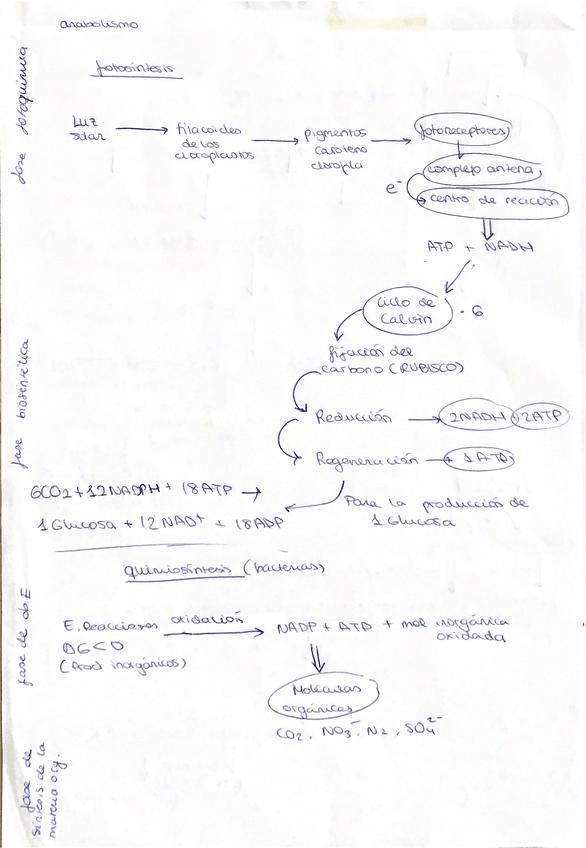 anabolismo
fotosíntesis
fase fotoquímica
Luz
solar
tilacoides
de los
cloroplastos
pigmentos
caroteno
clorofila
fotoreceptores
complejo antena
e⁻
centro de reacción
ATP + NADH
fase biosintética
Ciclo de
Calvin
· 6
fijación del
carbono (RUBISCO)
Reducción
2NADH + 2ATP
Regeneración
+ 1ATP
6CO2 + 12NADPH + 18ATP →
1Glucosa + 12NAD⁺ + 18ADP
Para la producción de
1 Glucosa
quimiosíntesis (bacterias)
fase de ob E
E. Reacciones
oxidación
ΔG<0
(Prod inorgánicos)
NADP + ATP + mol inorgánica
oxidada
Moléculas
orgánicas
CO2, NO3⁻, N2, SO4²⁻
fase de
síntesis de la
materia org.